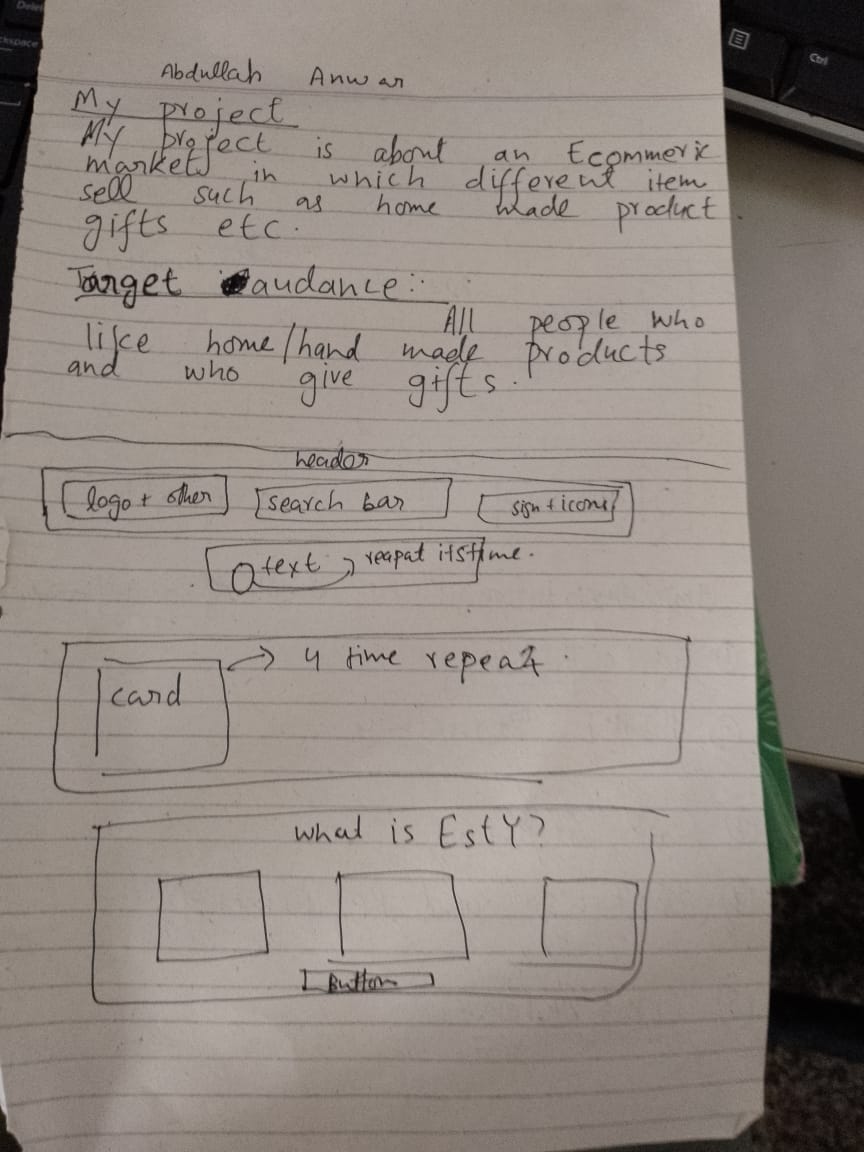 Abdullah Anwar
My project
My project is about an Ecommeric
market in which different item
sell such as home made product.
gifts etc.
Target audance:
All people who
like home/hand made products
and who give gifts.
header
logo + other search bar sign + icons
text reapat its time.
card 4 time repeat.
What is EstY?
Button
Ctrl